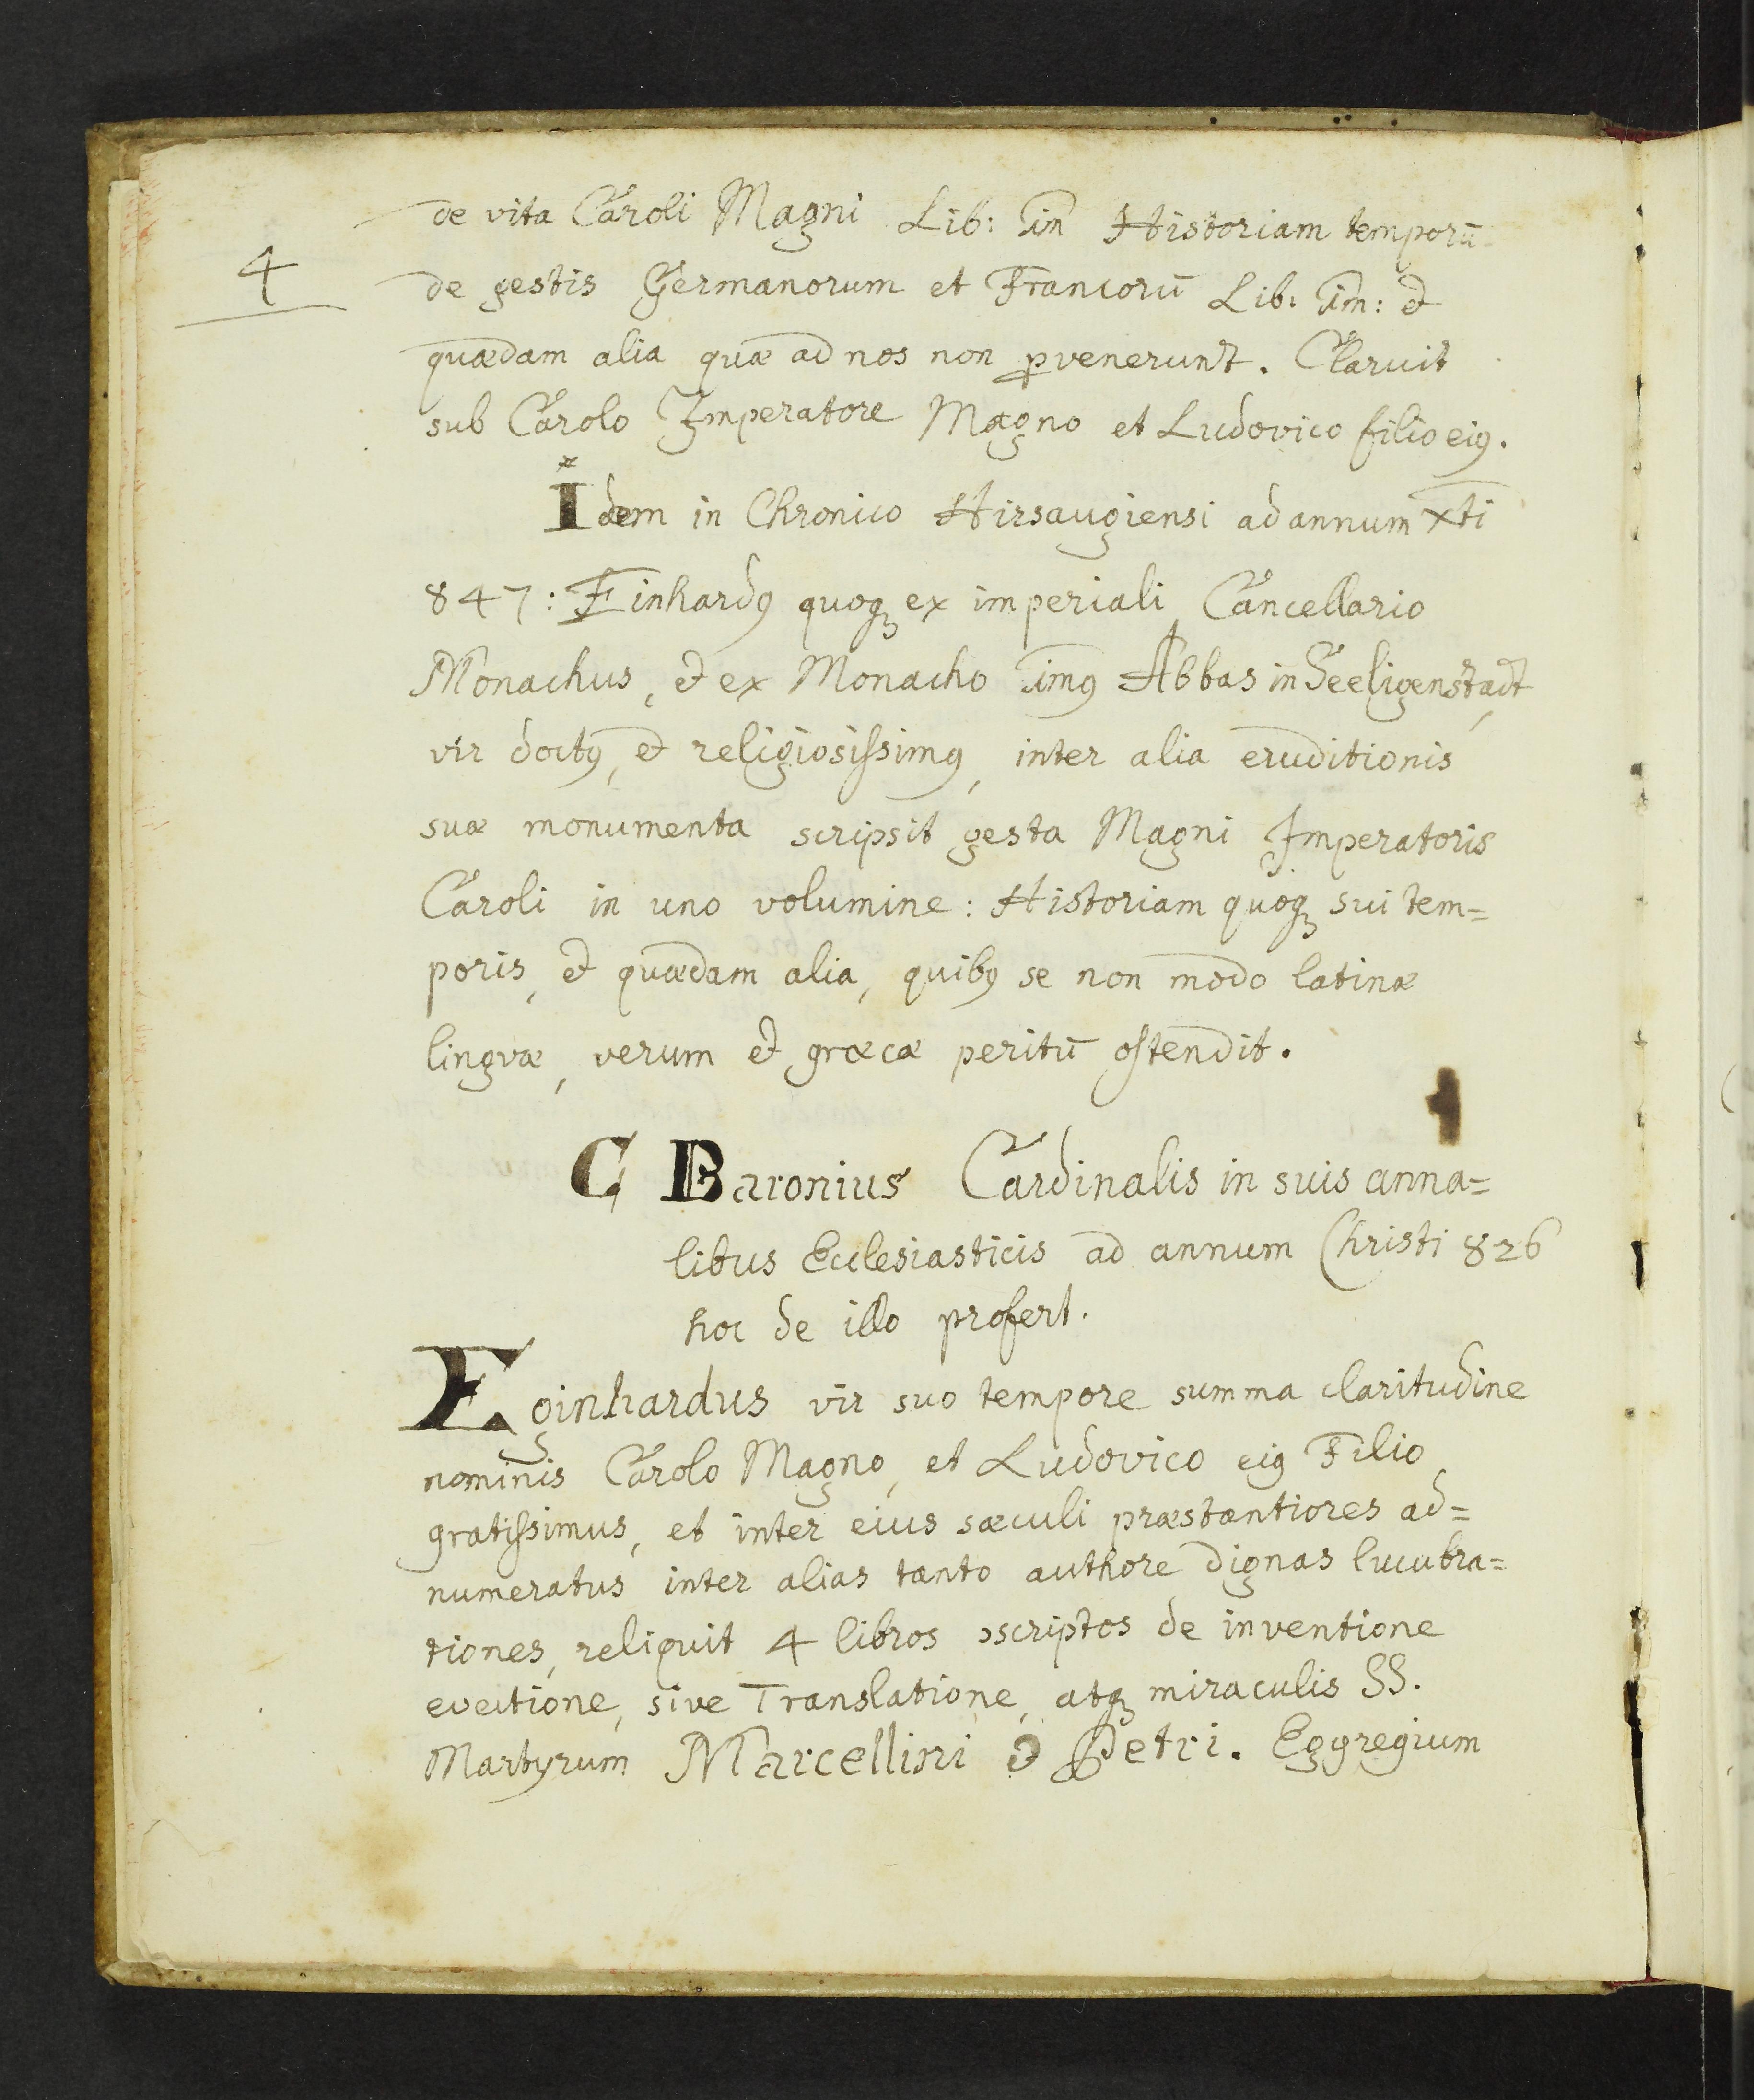 de vita Caroli Magni Lib: 1m̄ Historiam temporū
4
de gestis Germanorum et Francorū Lib: 1m̄: et
quædam alia quæ ad nos non ꝑvenerunt. Claruit
sub Carolo Imperatore Magno et Ludovico filio eiꝰ.
Idem in Chronico Hirsaugiensi ad annum Xti
847: Einhardꝰ quoqꝫ ex imperiali Cancellario
Monachus, et ex Monacho 1mꝰ Abbas in Seeligenstadt,
vir doctꝰ, et religiosissimꝰ, inter alia eruditionis
suæ monumenta scripsit gesta Magni Imperatoris
Caroli in uno volumine: Historiam quoqꝫ sui tem=
poris, et quædam alia, quibꝰ se non modo latinæ
lingvæ, verum et græcæ peritū ostendit.
C Baronius Cardinalis in suis anna=
libus Ecclesiasticis ad annum Christi 826
hoc de illo profert.
Eginhardus vir suo tempore summa claritudine
nominis Carolo Magno, et Ludovico eiꝰ Filio
gratissimus, et inter eius sæculi præstantiores ad=
numeratus inter alias tanto authore dignas lucubra=
tiones, reliquit 4 libros ꝯscriptos de inventione
evectione, sive Translatione, atqꝫ miraculis SS.
Martyrum Marcellini & Petri. Eggregium